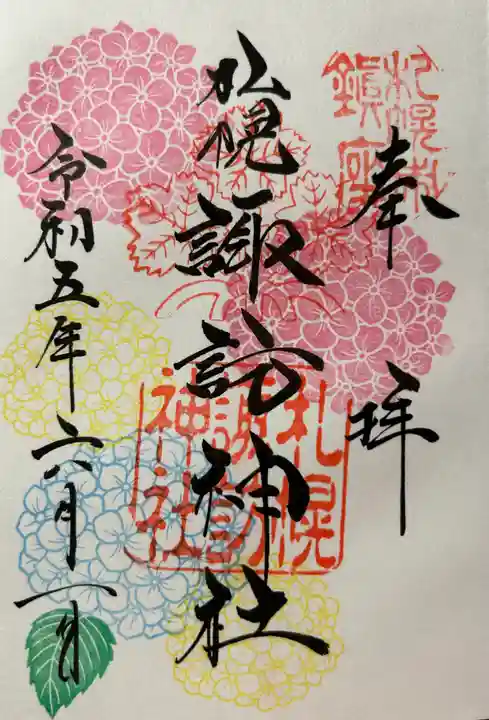 奉拝
札幌村
鎮座
札幌諏訪神社
札幌
諏訪
神社
令和五年六月一日